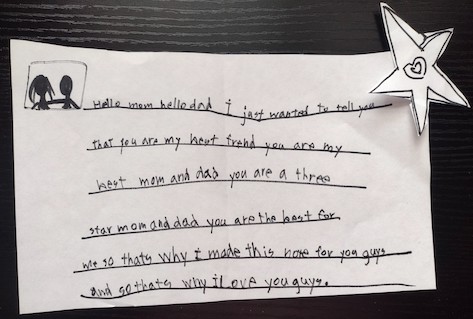 Hello mom hello dad i just wanted to tell you
that you are my best frend you are my
best mom and dad you are a three
star mom and dad you are the best for
me so thats why i made this note for you guys
and so thats why i love you guys.